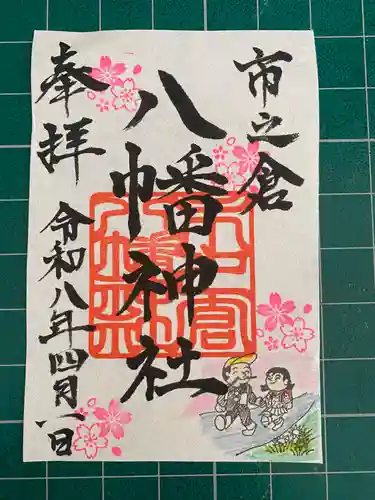 市之倉
八幡神社
奉拝
令和八年四月一日